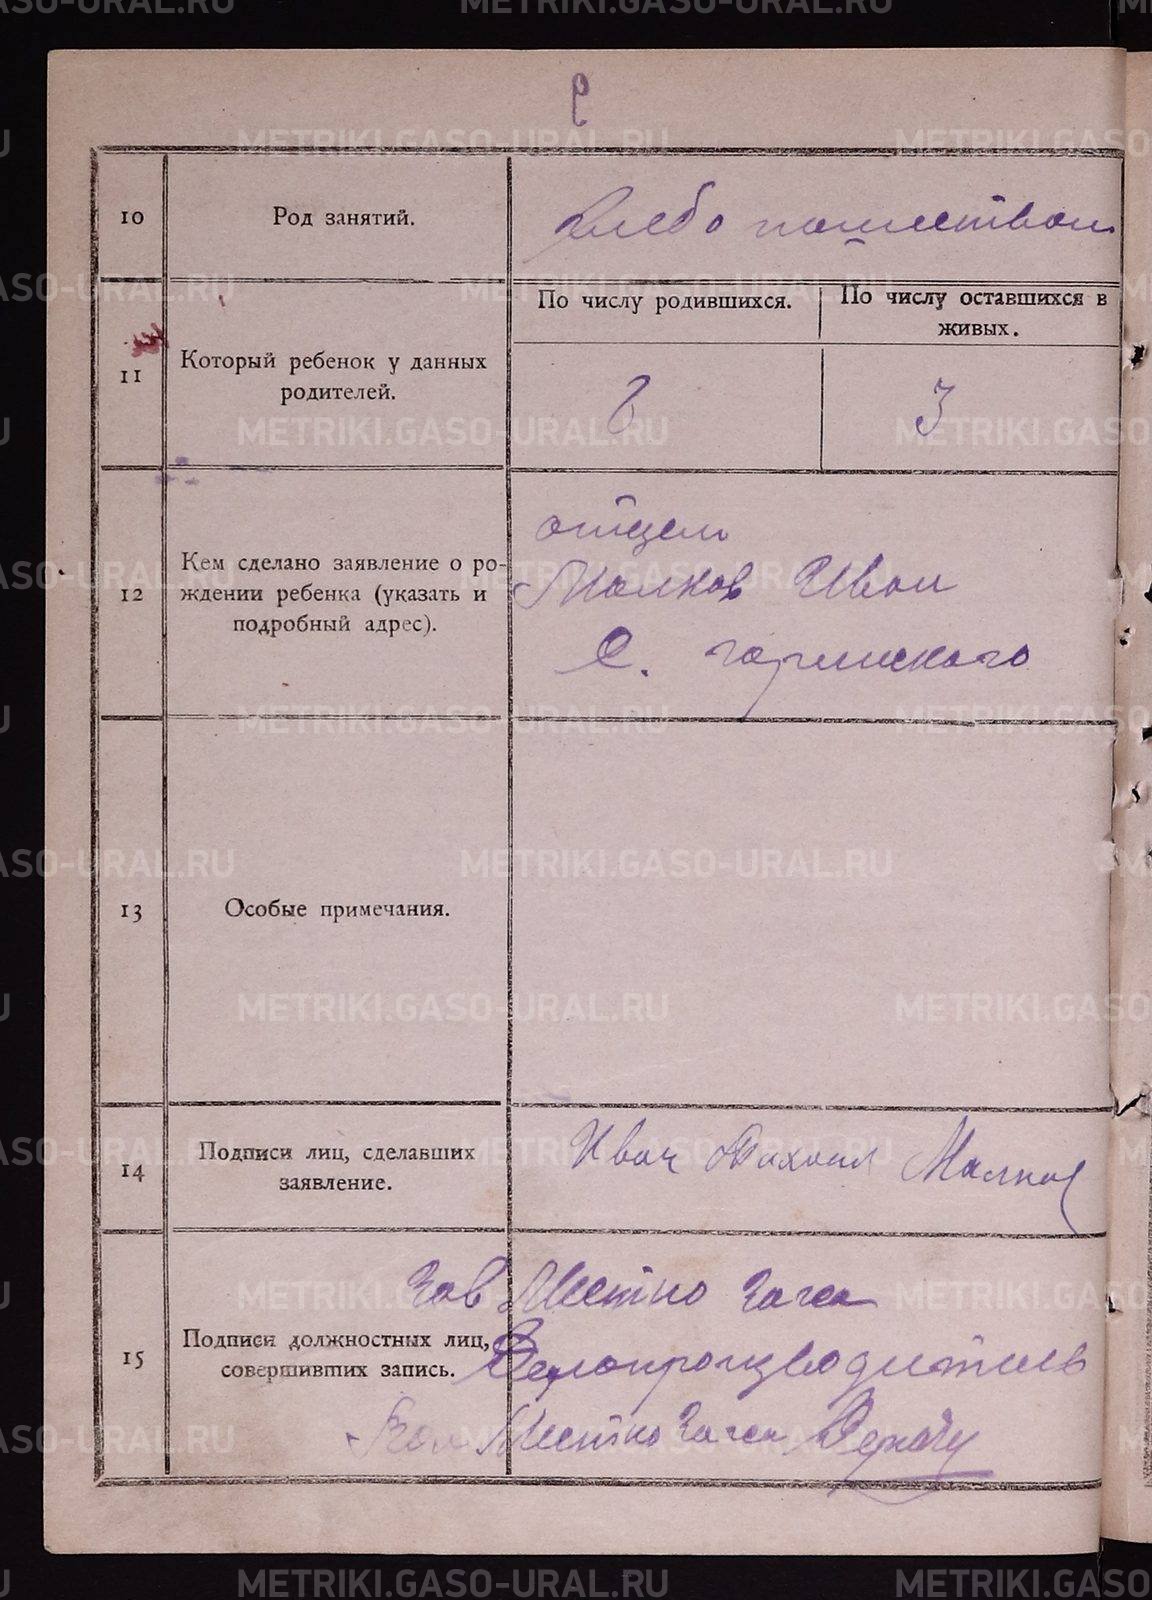 10
Род занятий.
Хлебо пашеством
11
Который ребенок у данных
родителей.
По числу родившихся.
По числу оставшихся в
живых.
6
3
12
Кем сделано заявление о ро-
ждении ребенка (указать и
подробный адрес).
отцем
Малков Иван
С.
13
Особые примечания.
14
Подписи лиц, сделавших
заявление.
Иван Малков
15
Подписи должностных лиц,
совершивших запись.
Зав Местно Загса
Делопроизводитель
Местно Загса
METRIKI.GASO-URAL.RU